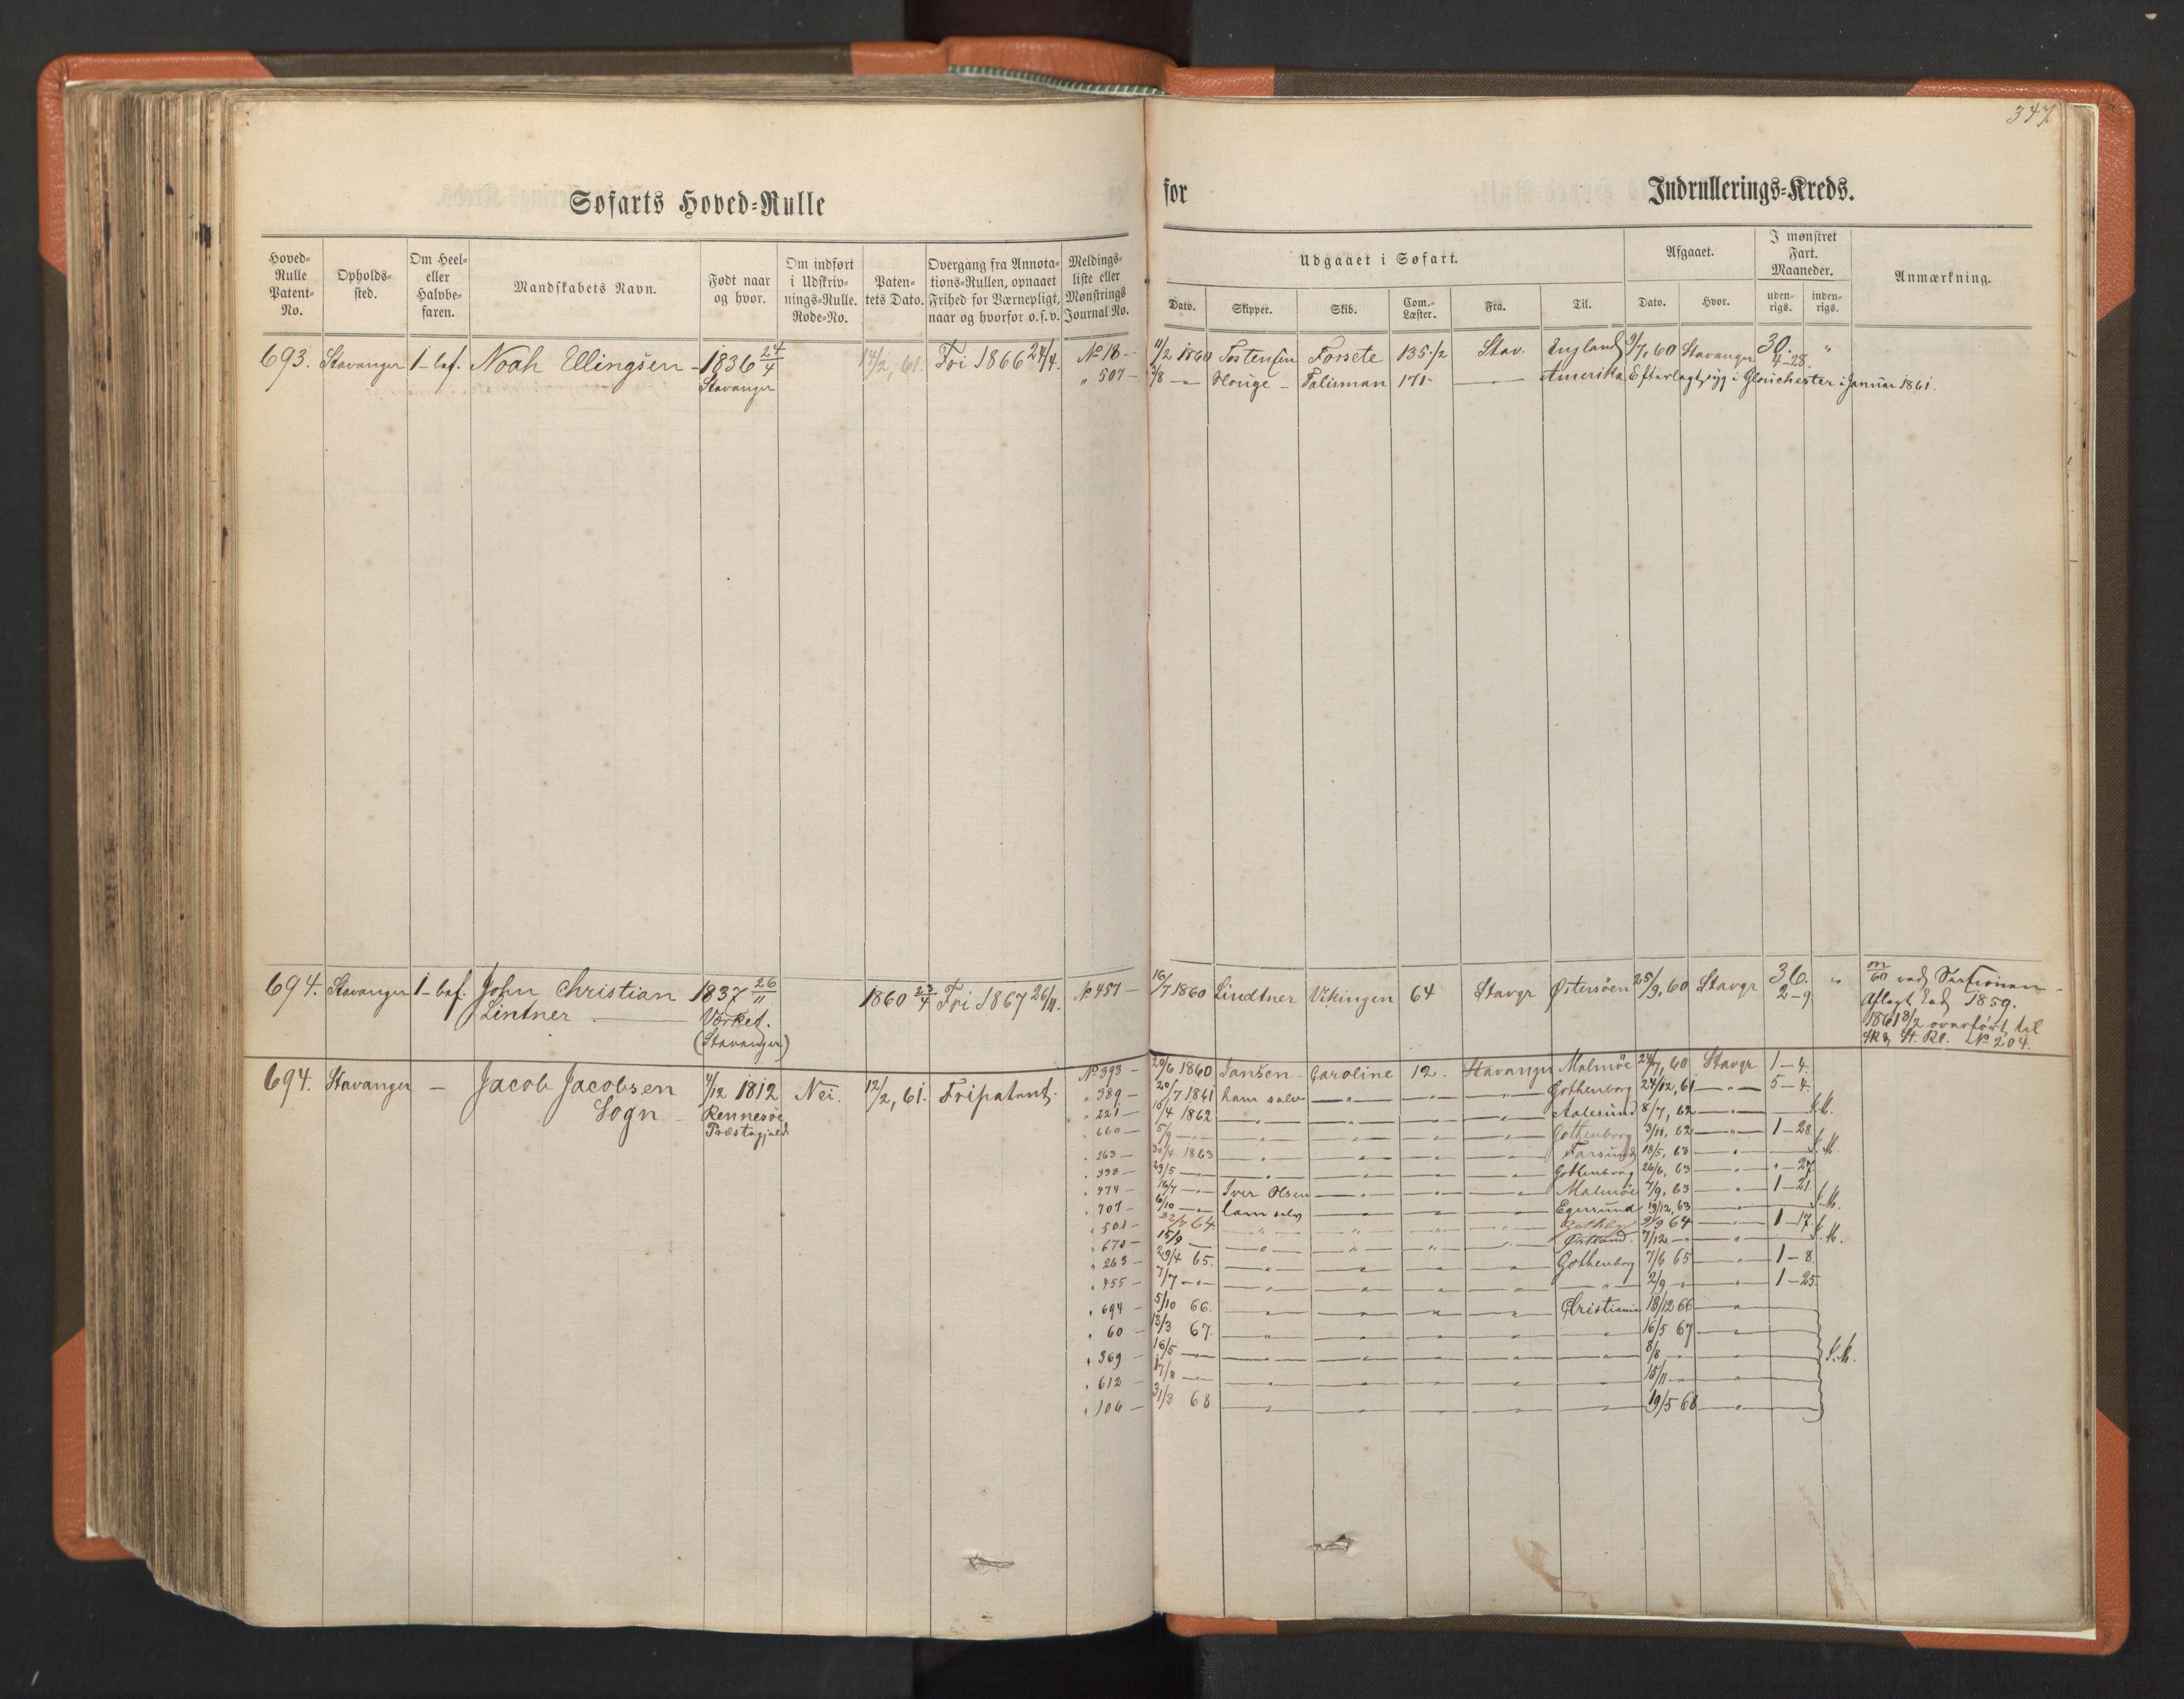 347
Søfarts Hoved=Rulle
for Indrullerings=Kreds.
Hoved=Rulle Patent=No.
Opholds=sted.
Om Heel= eller Halvbe=faren.
Mandskabets Navn.
Født naar og hvor.
Om indført i Udskriv=nings=Rulle. Rode=No.
Paten=tets Dato.
Overgang fra Annota=tions=Rullen, opnaaet Frihed for Værnepligt, naar og hvorfor o.s.v.
Meldings=liste eller Mønstrings Journal No.
Udgaaet i Søfart.
Dato. Skipper. Skib. Com.=Læster. Fra. Til.
Afgaaet.
Dato. Hvor.
I mønstret Fart. Maaneder.
uden=rigs. inden=rigs.
Anmærkning.
693. Stavanger 1-bef. Noah Ellingsen - 1836 24/4 14/2, 61. Fri 1866 24/4. No 18 - 11/2 1860 Tostensen Forsete 135 1/2 Stav. England 9/7, 60 Stavanger 30. "
Stavanger " 507 - 3/8 — Houge - Talisman 171 - — Amerika Efterlagt syg i Glouchester i Januar 1861.
4-28.
694. Stavanger 1-bef. John Christian 1837 26/11 1860 23/4 Fri 1867 26/11. No 457 - 16/7 1860 Lindtner Vikingen 64 Stavgr Østersøen 25/9, 60 Stavgr 36. "
Lintner — Værket. 2-9
(Stavanger)
Aflagt Ed 1859.
1861 8/2 overført til
St. Rl. No 204.
694. Stavanger - Jacob Jacobsen 4/12 1812 Nei. 12/2, 61. Fripatent. No 393 - 29/6 1860 Jansen - Caroline 12. Stavanger Malmøe 24/7, 60 Stavgr 1-4.
Sogn - Rennesøe " 389 - 20/7 1861 ham selv — " — Gothenborg 24/12, 61 — " — 5-4.
Præstegjeld " 221 - 18/4 1862 — " — Aalesund 8/7, 62 — " —
" 660 - 5/9 — " — Gothenborg 3/11, 62 — " — 1-28.
" 263 - 30/4 1863 — " — Farsund 18/5, 63 — " —
" 338 - 29/5 — " — Gothenborg 26/6, 63 — " — " -27.
" 474 - 16/7 — " — Iver Olsen — " — Malmøe 7/9, 63 — " — 1-21.
" 707 - 6/10 — " — ham selv — " — Egersund 19/12, 63 — " —
" 501 - 22/7 64. " " " " 2/9 64 — " — 1-17.
" 670 - 15/9 — " " " " Østland 7/12 — " —
" 263 - 29/4 65. — " — Gothenborg 7/6 65 — " — 1-8.
" 455 - 7/7 — " — " — 2/9 — " — 1-25.
" 694 - 5/10 66. — " — Christiania 18/12 66 — " —
" 60 - 13/3 67. — " — 16/5 67 — " —
" 369 - 16/5 — " — 8/8 — " —
" 612 - 17/8 — " — 15/11 — " —
" 106 - 31/3 68 — " — 19/5 68 — " —